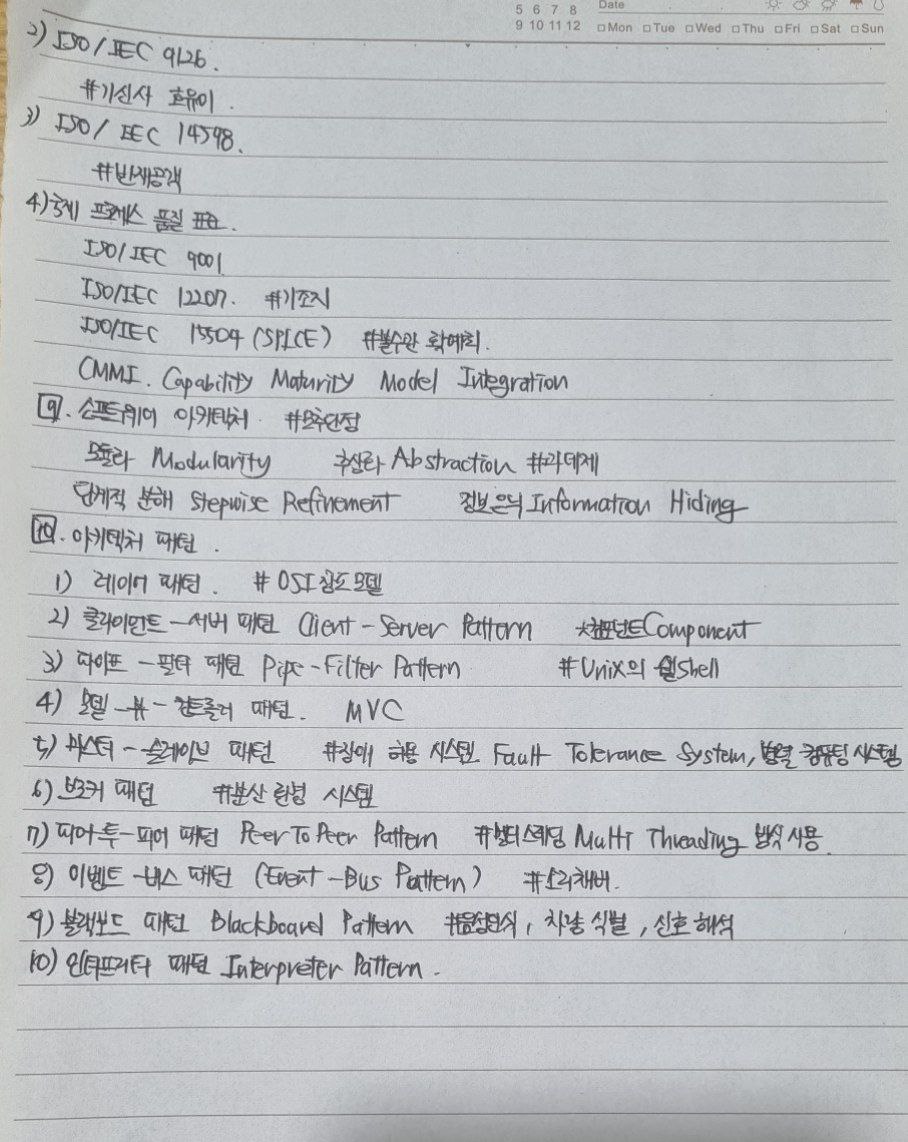 5 6 7 8 Date
9 10 11 12 □Mon □Tue □Wed □Thu □Fri □Sat □Sun
2) ISO/IEC 9126.
#기신사 효유이.
3) ISO/IEC 14598.
#반재공객
4) 국제 프로세스 품질 표준.
ISO/IEC 9001
ISO/IEC 12207. #기조지
ISO/IEC 15504 (SPICE) #불수관 확예최.
CMMI. Capability Maturity Model Integration
9. 소프트웨어 아키텍처. #모추단정
모듈화 Modularity 추상화 Abstraction #과데제
단계적 분해 Stepwise Refinement 정보은닉 Information Hiding
10. 아키텍처 패턴.
1) 레이어 패턴. # OSI 참조 모델
2) 클라이언트-서버 패턴 Client-Server Pattern *컴포넌트 Component
3) 파이프-필터 패턴 Pipe-Filter Pattern #Unix의 쉘Shell
4) 모델-뷰-컨트롤러 패턴. MVC
5) 마스터-슬레이브 패턴 #장애 허용 시스템 Fault Tolerance System, 병렬 컴퓨팅 시스템
6) 브로커 패턴 #분산 환경 시스템
7) 피어-투-피어 패턴 Peer To Peer Pattern #멀티스레딩 Multi Threading 방식 사용.
8) 이벤트-버스 패턴 (Event-Bus Pattern) #소리채버.
9) 블랙보드 패턴 Blackboard Pattern #음성인식, 차량 식별, 신호 해석
10) 인터프리터 패턴 Interpreter Pattern.